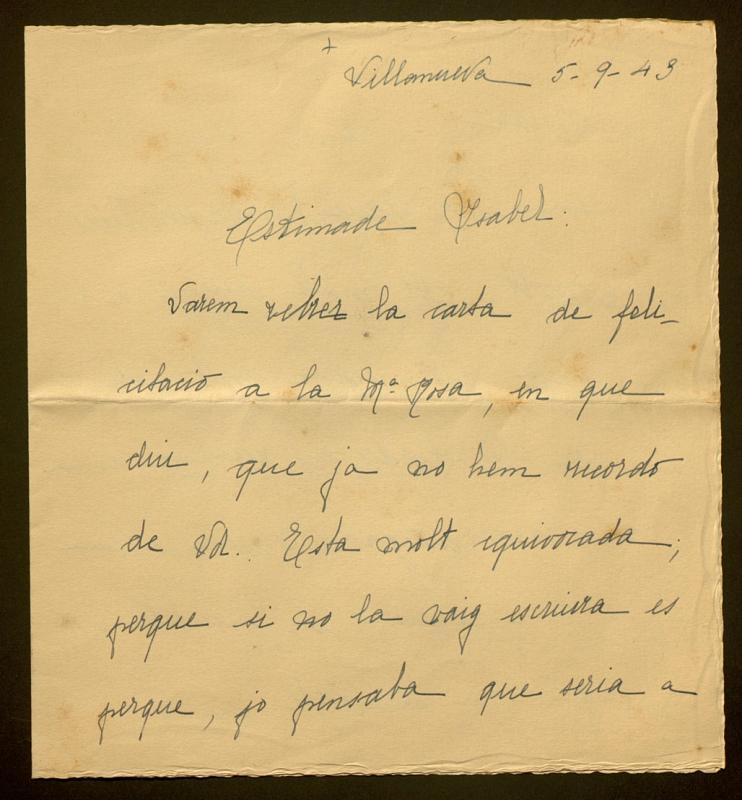 +
Villanueva 5-9-43
Estimade Ysabel:
Varem rebrer la carta de feli-
citació a la Mª Rosa, en que
diu, que ja no hem recordo
de Vd. Esta molt equivocada;
perque si no la vaig escriura es
perque, jo pensaba que seria a